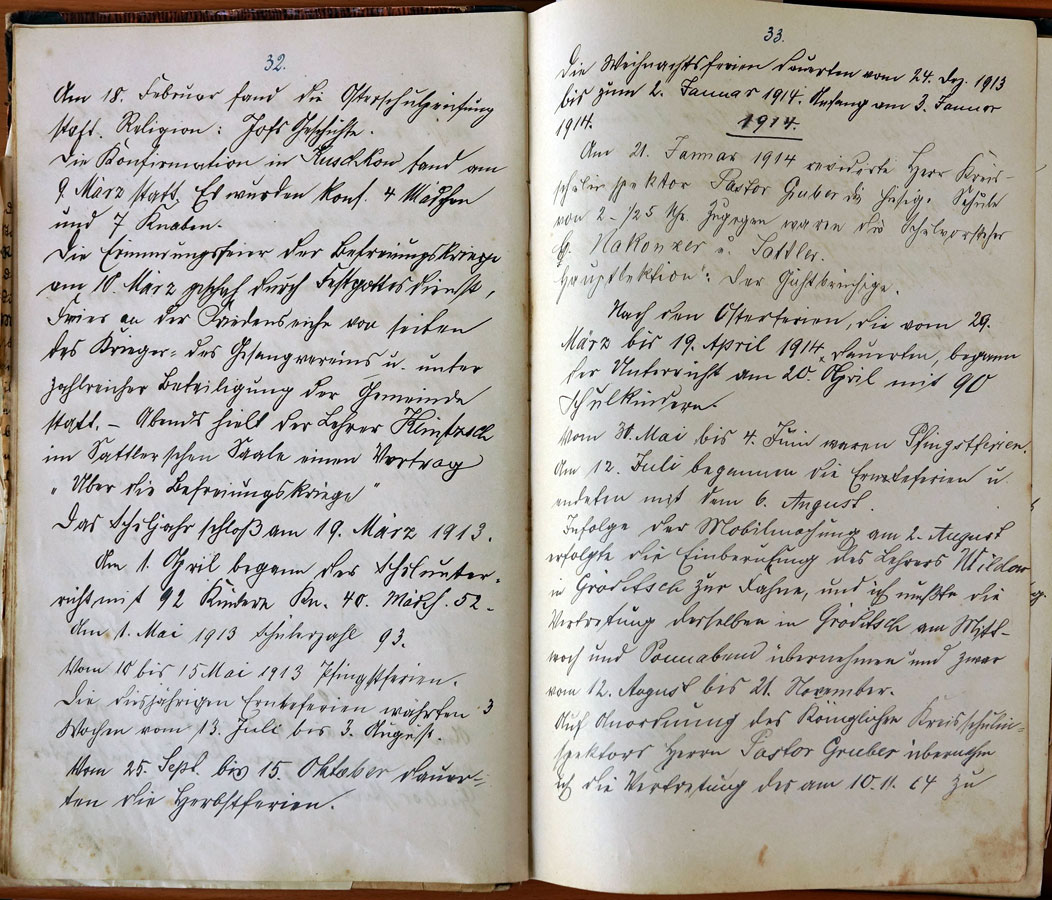 32.
Am 18. Februar fand die Osterschulprüfung
statt. Religion: Josefs Geschichte.
Die Konfirmation in Kuschkow fand am
9. März statt. Es wurden konf. 4 Mädchen
und 7 Knaben.
Die Erinnerungsfeier der Befreiungskriege
am 10. März geschah durch Festgottesdienst,
Freier an der Friedenseiche von seiten
des Krieger- des Gesangvereins u. unter
zahlreicher Beteiligung der Gemeinde
statt. – Abends hielt der Lehrer Klintzsch
im Sattlerschen Saale einen Vortrag
„Über die Befreiungskriege"
Das Schuljahr schloß am 19. März 1913.
Am 1. April begann der Schulunter-
richt mit 92 Kindern Kn. 40. Mädch. 52.
Am 1. Mai 1913 Schülerzahl 93.
Vom 10 bis 15 Mai 1913 Pfingstferien.
Die diesjährigen Ernteferien währten 3
Wochen vom 13. Juli bis 3. August.
Vom 25. Sept. bis 15. Oktober dauer-
ten die Herbstferien.
33.
Die Weihnachtsferien dauerten vom 24. Dez. 1913
bis zum 2. Januar 1914. Anfang am 3. Januar
1914.
1914.
Am 21. Januar 1914 revidierte Herr Kreis-
schulinspektor Pastor Gruber die hiesige Schule
von 2–1/2 5 Uhr. Zugegen waren die Schulvorsteher
H. Nakonzer u. Sattler.
Hauptlektion: Der Gichtbrüchige.
Nach den Osterferien, die vom 29.
März bis 19. April 1914 dauerten, begann
der Unterricht am 20. April mit 90
Schulkindern.
Vom 30. Mai bis 4. Juni waren Pfingstferien.
Am 12. Juli begannen die Ernteferien u
endeten mit dem 6. August.
Infolge der Mobilmachung am 2. August
erfolgte die Einberufung des Lehrers Mildow
in Gröditsch zur Fahne, und ich mußte die
Vertretung desselben in Gröditsch am Mitt-
woch und Sonnabend übernehmen und zwar
vom 12. August bis 21. November.
Auf Anordnung des Königlichen Kreisschulin-
spektors Herrn Pastor Gruber übernahm
ich die Vertretung des am 10. 11. 14 zu